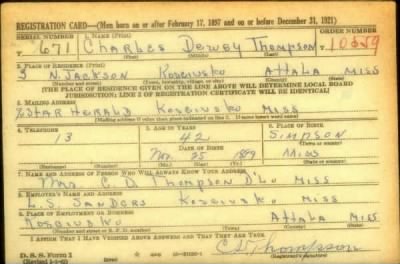 REGISTRATION CARD—(Men born on or after February 17, 1897 and on or before December 31, 1921)
SERIAL NUMBER 1. NAME (Print) ORDER NUMBER
T 671 Charles Dewey Thompson 10659
(First) (Middle) (Last)
2. PLACE OF RESIDENCE (Print)
N. JACKSON Kosciusko ATTALA MISS
(Number and street) (Town, township, village, or city) (County) (State)
[THE PLACE OF RESIDENCE GIVEN ON THE LINE ABOVE WILL DETERMINE LOCAL BOARD
JURISDICTION; LINE 2 OF REGISTRATION CERTIFICATE WILL BE IDENTICAL]
3. MAILING ADDRESS
STAR HERALD Kosciusko MISS
[Mailing address if other than place indicated on line 2. If same insert word same]
4. TELEPHONE 5. AGE IN YEARS 6. PLACE OF BIRTH
13 42 SIMPSON
DATE OF BIRTH (Town or county)
Nov. 25 MISS
(Exchange) (Number) (Mo.) (Day) (Yr.) (State or country)
7. NAME AND ADDRESS OF PERSON WHO WILL ALWAYS KNOW YOUR ADDRESS
Mrs. C. D. THOMPSON D'Lo MISS
8. EMPLOYER'S NAME AND ADDRESS
L. S. SANDERS Kosciusko MISS
9. PLACE OF EMPLOYMENT OR BUSINESS
Kosciusko ATTALA MISS
(Number and street or R. F. D. number) (Town) (County) (State)
I AFFIRM THAT I HAVE VERIFIED ABOVE ANSWERS AND THAT THEY ARE TRUE.
D. S. S. Form 1 C D Thompson
(Revised 1-1-42) (over) (Registrant's signature)